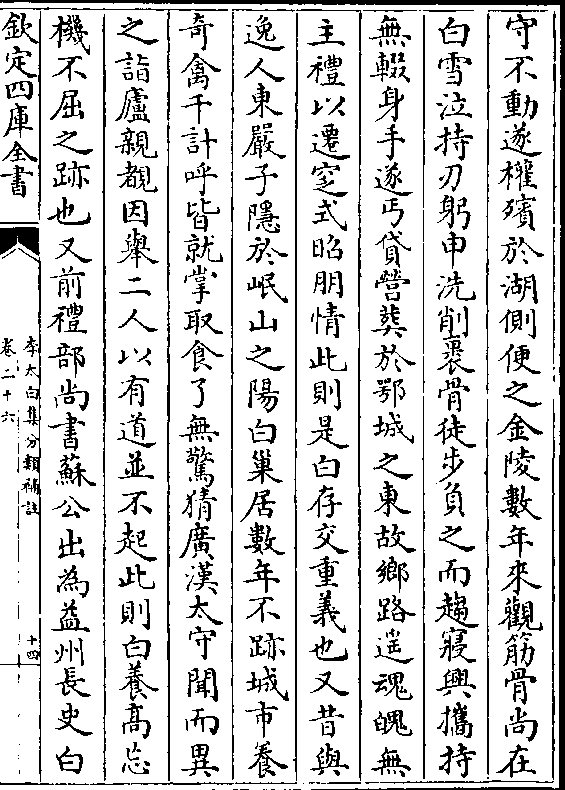 守不動遂權殯於湖側便之金陵數年來觀筋骨尚在
白雪泣持刃躬申洗削裹骨徒步負之而趨寢興攜持
無輟身手遂丐貸營葬於鄂城之東故鄉路遥魂魄無
主禮以遷窆式昭朋情此則是白存交重義也又昔與
逸人東嚴子隱於岷山之陽白巢居數年不跡城市養
奇禽千計呼皆就掌取食了無驚猜廣漢太守聞而異
之詣廬親覩因舉二人以有道並不起此則白養髙忘
機不屈之跡也又前禮部尚書蘇公出為益州長史白
欽定四庫全書
李太白集分類補註
卷二十六
十四